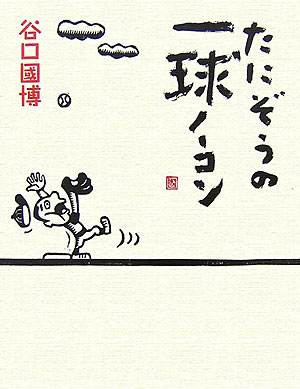 たにぞうの
一球ノーコン
谷口國博